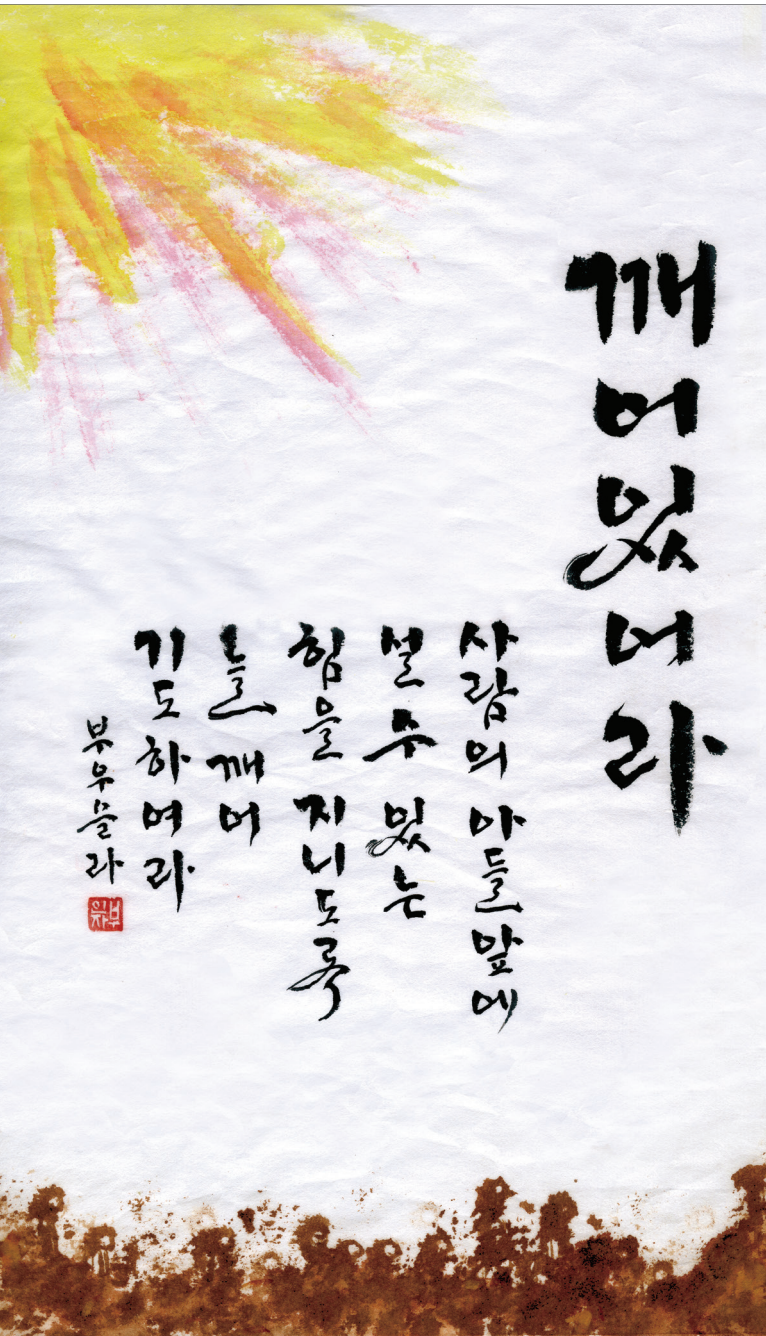 깨어있어라
사람의 아들 앞에
설 수 있는
힘을 지니도록
늘 깨어
기도하여라